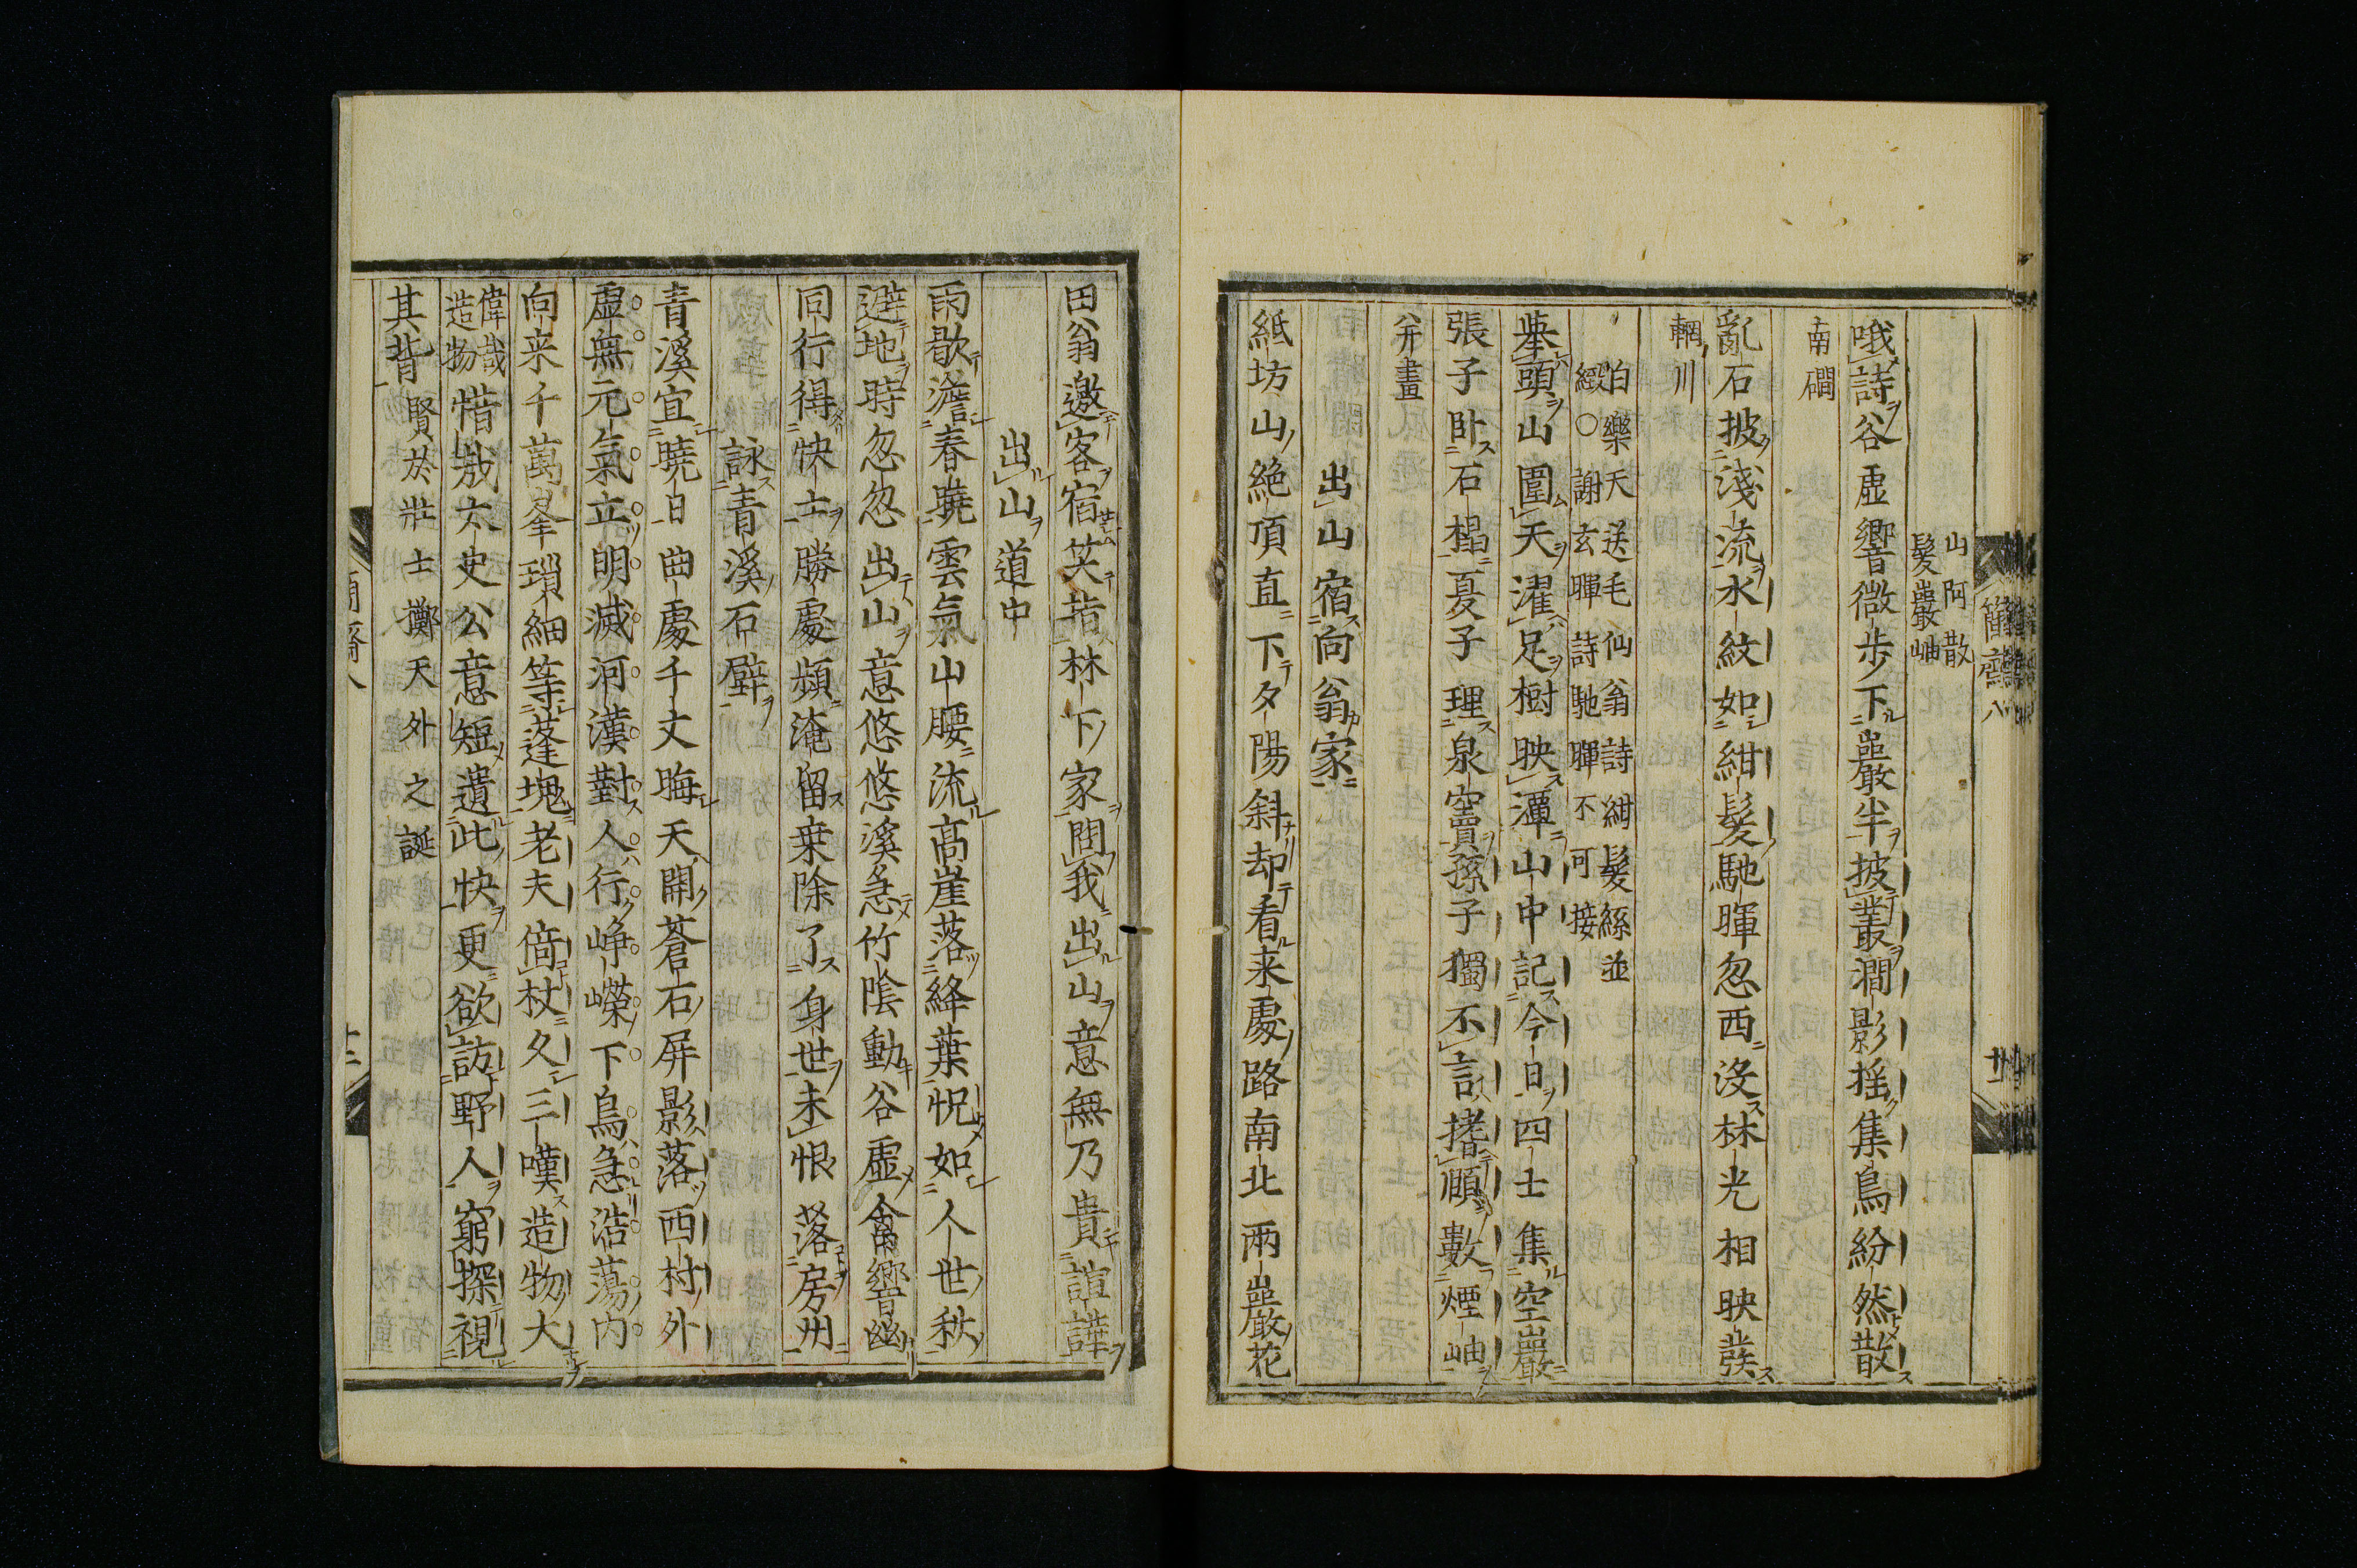 山阿散
髮巖岫
哦詩谷虛響微步下巖半披叢澗影搖集鳥紛然散
南磵
亂石披淺流水紋如紺髮馳暉忽西沒林光相映發
輞川
白樂天送毛仙翁詩紺髮絲並
緻〇謝玄暉詩馳暉不可接
舉頭山圍天濯足樹映潭山中記今日四士集空巖
張子卧石榻夏子理泉竇孫子獨不言搘頤數煙岫
並畫
出山宿向翁家
紙坊山絶頂直下夕陽斜却看来處路南北兩巖花
簡齋八
田翁邀客宿笑指林下家問我出山意無乃貴諠譁
出山道中
雨歇澹春曉雲氣山腰流高崖落絳葉怳如人世秋
避地時忽忽出山意悠悠溪急竹陰動谷虛禽響幽
同行得快士勝處頻淹留乗除了身世未恨落房州
詠青溪石壁
青溪宜曉日曲處千丈晦天開蒼石屏影落西村外
虛無元氣立明滅河漢對人行崢嶸下鳥急浩蕩內
向来千萬峯瑣細等蓬塊老夫倚杖久三嘆造物大
偉哉
造物
惜哉太史公意短遺此快更欲訪野人窮探視
其背
賢於壯士擲天外之誕